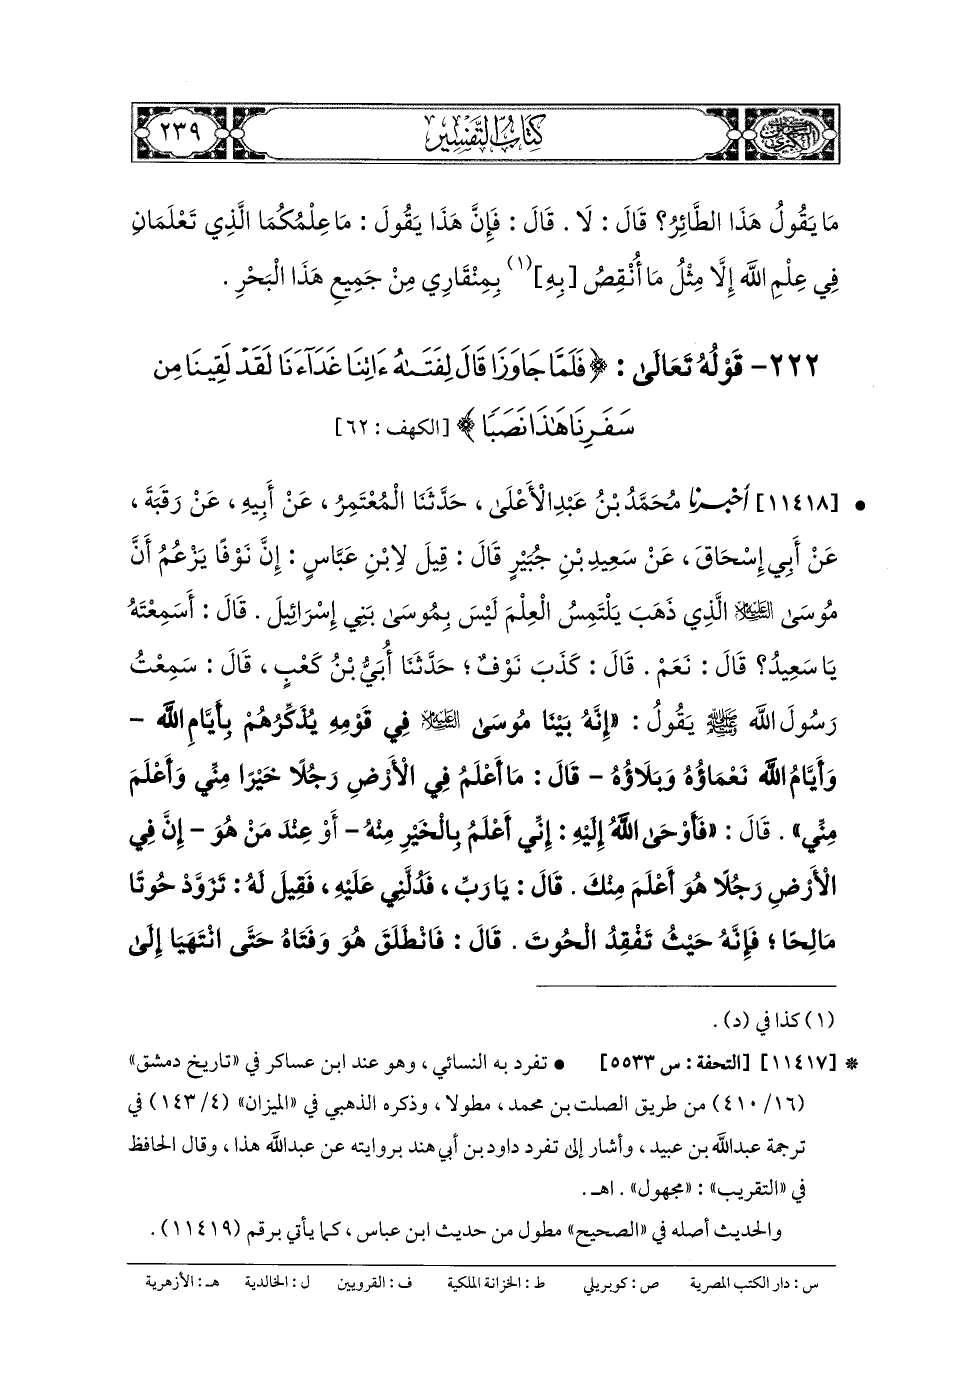 السنن الكبرى
كتاب التفسير
٢٣٩
مَا يَقُولُ هَذَا الطَّائِرُ؟ قَالَ : لَا . قَالَ : فَإِنَّ هَذَا يَقُولُ : مَا عِلْمُكُمَا الَّذِي تَعْلَمَانِ
فِي عِلْمِ اللَّه إِلَّا مِثْلُ مَا أُنْقِصُ [بِهِ](١) بِمِنْقَارِي مِنْ جَمِيعِ هَذَا الْبَحْرِ .
٢٢٢- قَوْلُهُ تَعَالَى : ﴿فَلَمَّا جَاوَزَا قَالَ لِفَتَىٰهُ ءَاتِنَا غَدَآءَنَا لَقَدْ لَقِينَا مِن
سَفَرِنَا هَٰذَا نَصَبًا ﴾ [الكهف : ٦٢]
• [١١٤١٨] أَخْبَرَنَا مُحَمَّدُ بْنُ عَبْدِ الْأَعْلَى ، حَدَّثَنَا الْمُعْتَمِرُ ، عَنْ أَبِيهِ ، عَنْ رَقَبَةَ ،
عَنْ أَبِي إِسْحَاقَ ، عَنْ سَعِيدِ بْنِ جُبَيْرٍ قَالَ : قِيلَ لِابْنِ عَبَّاسٍ : إِنَّ نَوْفًا يَزْعُمُ أَنَّ
مُوسَى عليه السلام الَّذِي ذَهَبَ يَلْتَمِسُ الْعِلْمَ لَيْسَ بِمُوسَى بَنِي إِسْرَائِيلَ . قَالَ : أَسَمِعْتَهُ
يَا سَعِيدُ؟ قَالَ : نَعَمْ . قَالَ : كَذَبَ نَوْفٌ ؛ حَدَّثَنَا أُبَيُّ بْنُ كَعْبٍ ، قَالَ : سَمِعْتُ
رَسُولَ اللَّه ﷺ يَقُولُ : «إِنَّهُ بَيْنَا مُوسَى عليه السلام فِي قَوْمِهِ يُذَكِّرُهُمْ بِأَيَّامِ اللَّه -
وَأَيَّامُ اللَّه نَعْمَاؤُهُ وَبَلَاؤُهُ - قَالَ : مَا أَعْلَمُ فِي الْأَرْضِ رَجُلًا خَيْرًا مِنِّي وَأَعْلَمَ
مِنِّي» . قَالَ : «فَأَوْحَى اللَّهُ إِلَيْهِ : إِنِّي أَعْلَمُ بِالْخَيْرِ مِنْهُ - أَوْ عِنْدَ مَنْ هُوَ - إِنَّ فِي
الْأَرْضِ رَجُلًا هُوَ أَعْلَمَ مِنْكَ . قَالَ : يَا رَبِّ ، فَدُلَّنِي عَلَيْهِ ، فَقِيلَ لَهُ : تَزَوَّدْ حُوتًا
مَالِحًا ؛ فَإِنَّهُ حَيْثُ تَفْقِدُ الْحُوتَ . قَالَ : فَانْطَلَقَ هُوَ وَفَتَاهُ حَتَّى انْتَهَيَا إِلَى
(١) كذا في (د) .
* [١١٤١٧] [التحفة : س ٥٥٣٣] • تفرد به النسائي ، وهو عند ابن عساكر في «تاريخ دمشق»
(١٦/ ٤١٠) من طريق الصلت بن محمد ، مطولا ، وذكره الذهبي في «الميزان» (٤/ ١٤٣) في
ترجمة عبدالله بن عبيد ، وأشار إلى تفرد داود بن أبي هند بروايته عن عبدالله هذا ، وقال الحافظ
في «التقريب» : «مجهول» . اهـ .
والحديث أصله في «الصحيح» مطول من حديث ابن عباس ، كما يأتي برقم (١١٤١٩) .
س : دار الكتب المصرية ص : كوبريلي ط : الخزانة الملكية ف : القرويين ل : الخالدية هـ : الأزهرية